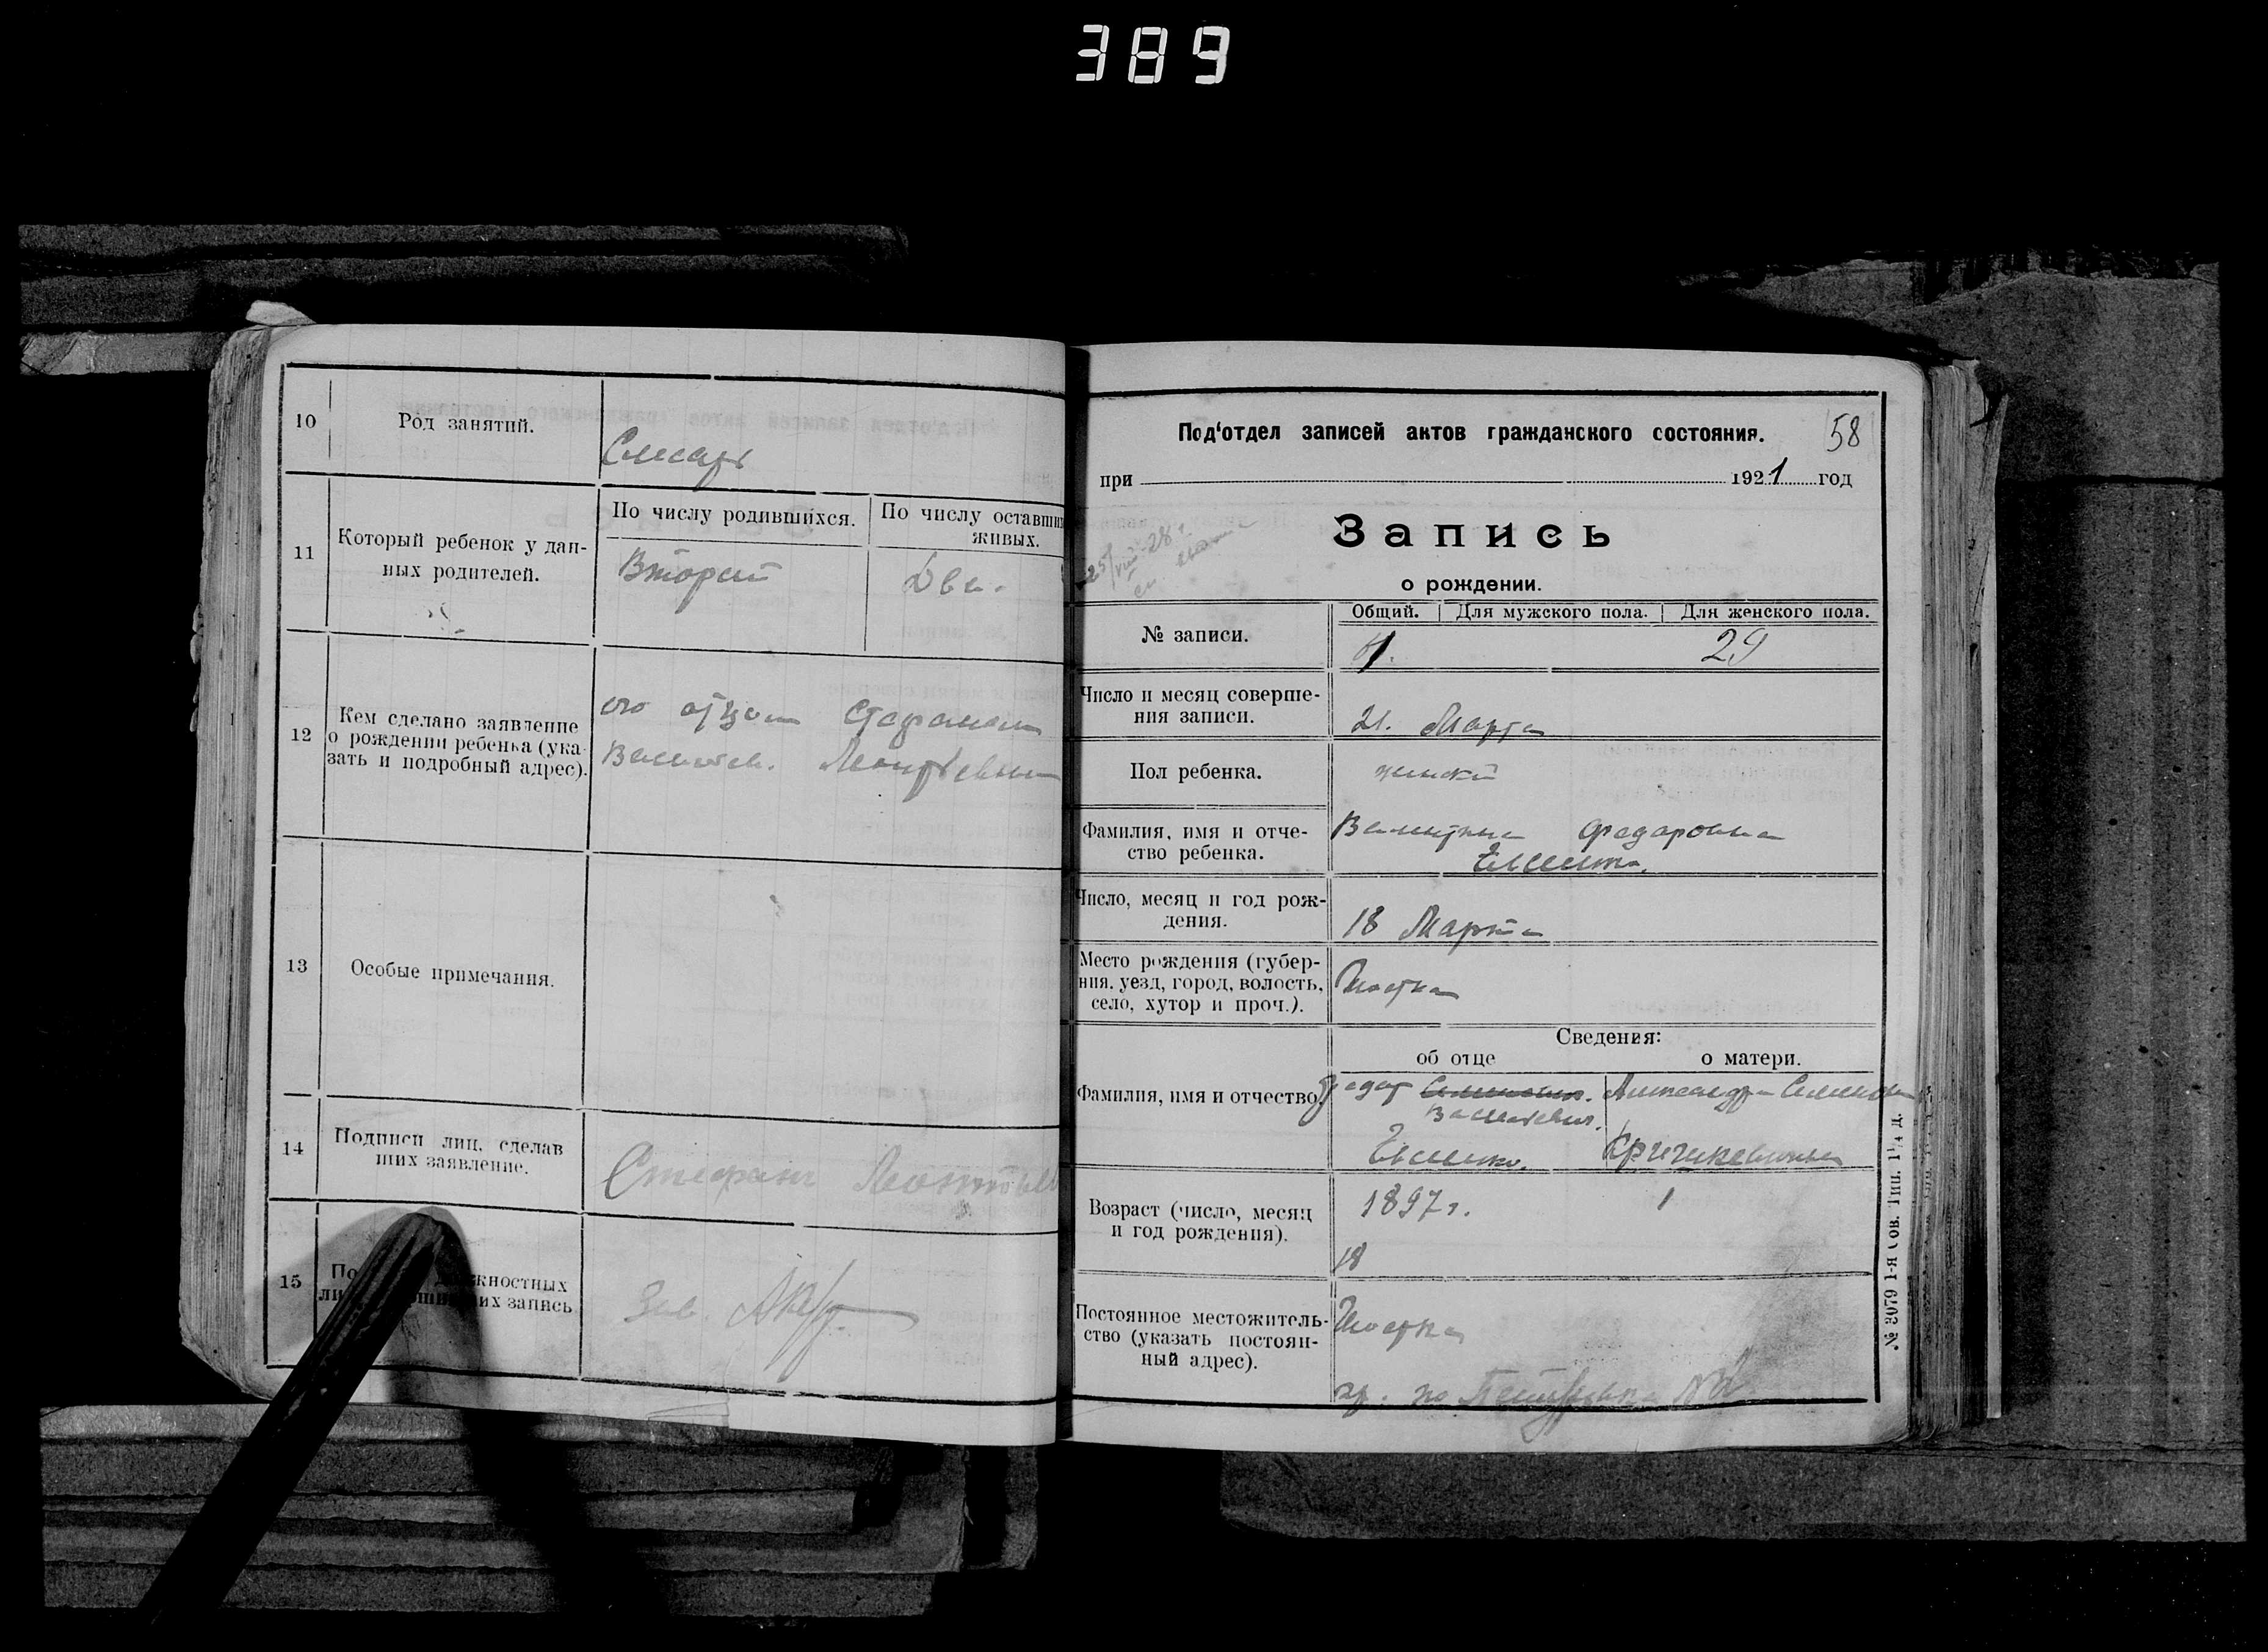 389
10
Род занятий.
Слесарь
11
Который ребенок у дан-
ных родителей.
По числу родившихся.
Второй
По числу оставши
живых.
Два.
12
Кем сделано заявление
о рождении ребенка (ука-
зать и подробный адрес).
его отцом Стефаном
13
Особые примечания.
14
Подписи лиц, сделав
ших заявление.
Стефан Леонтьев
15
кностных
их запись
Зав.
Под'отдел записей актов гражданского состояния.
58
при 1921 год
Запись
о рождении.
№ записи.
Общий. Для мужского пола. Для женского пола.
29
Число и месяц соверше-
ния записи.
21. Марта
Пол ребенка.
женский
Фамилия, имя и отче-
ство ребенка.
Валентина Федоровна
Число, месяц и год рож-
дения.
18 Марта
Место рождения (губер-
ния, уезд, город, волость,
село, хутор и проч.).
Шостка
Сведения:
об отце о матери.
Фамилия, имя и отчество.
Федор
Васильевич.
Александра Семенов
Возраст (число, месяц
и год рождения).
1897 г.
18
Постоянное местожитель-
ство (указать постоян-
ный адрес).
Шостка
№ 3079 1-я Сов. Тип. 1¼ д.